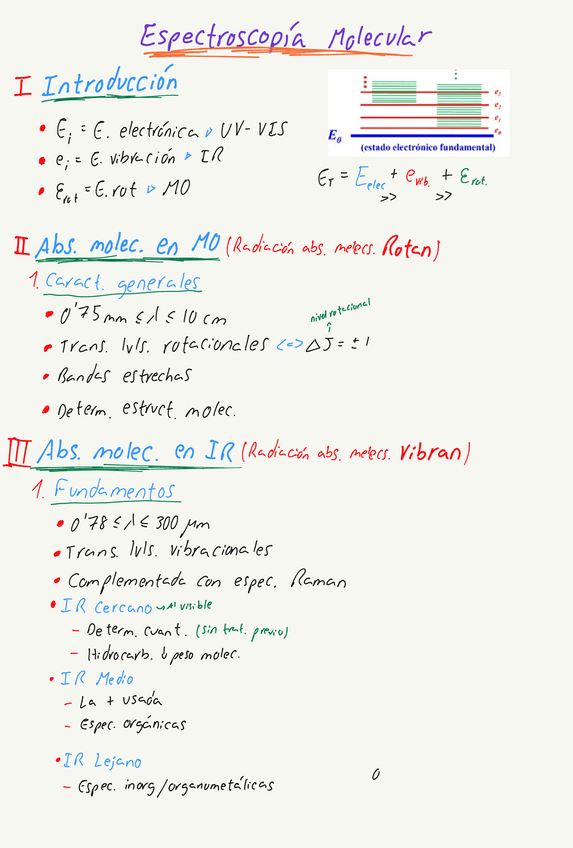 Espectroscopía Molecular
I Introducción
• Ei = E. electrónica ▷ UV-VIS
• ei = E. vibración ▷ IR
• Erot = E. rot ▷ MO
e3
e2
e1
e0
E0
(estado electrónico fundamental)
ET = Eelec + evib. + Erot.
>> >>
II Abs. molec. en MO (Radiación abs. melecs. Rotan)
1. Caract. generales
• 0'75 mm ≤ λ ≤ 10 cm
nivel rotacional
↑
• Trans. lvls. rotacionales <=> ΔJ = ± 1
• Bandas estrechas
• Determ. estruct. molec.
III Abs. molec. en IR (Radiación abs. melecs. Vibran)
1. Fundamentos
• 0'78 ≤ λ ≤ 300 μm
• Trans. lvls. vibracionales
• Complementada con espec. Raman
• IR Cercano ↝ Al visible
– Determ. cuant. (sin trat. previo)
– Hidrocarb. ↓ peso molec.
• IR Medio
– La + usada
– Espec. orgánicas
• IR Lejano
– Espec. inorg/organometálicas
0